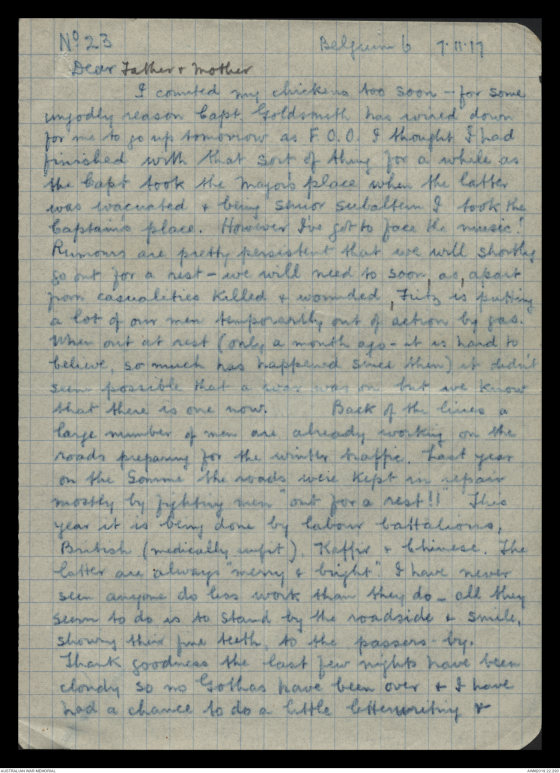 No 23 Belgium 6 7.11.17
Dear Father & Mother
I counted my chickens too soon – for some
ungodly reason Capt Goldsmith has wired down
for me to go up tomorrow as F.O.O. I thought I had
finished with that sort of thing for a while as
the Capt took the Major's place when the latter
was evacuated & being senior subaltern I took the
Captain's place. However I've got to face the music!
Rumours are pretty persistent that we will shortly
go out for a rest – we will need to soon, as, apart
from casualties killed & wounded, Fritz is putting
a lot of our men temporarily out of action by gas.
When out at rest (only a month ago – it is hard to
believe, so much has happened since then) it didn't
seem possible that a war was on but we know
that there is one now. Back of the lines a
large number of men are already working on the
roads preparing for the winter traffic. Last year
on the Somme the roads were kept in repair
mostly by fighting men "out for a rest!!" This
year it is being done by labour battalions,
British (medically unfit), Kaffir & Chinese. The
latter are always "merry & bright". I have never
seen anyone do less work than they do – all they
seem to do is to stand by the roadside & smile,
showing their fine teeth, to the passers-by.
Thank goodness the last few nights have been
cloudy so no Gothas have been over & I have
had a chance to do a little letterwriting &
AUSTRALIAN WAR MEMORIAL